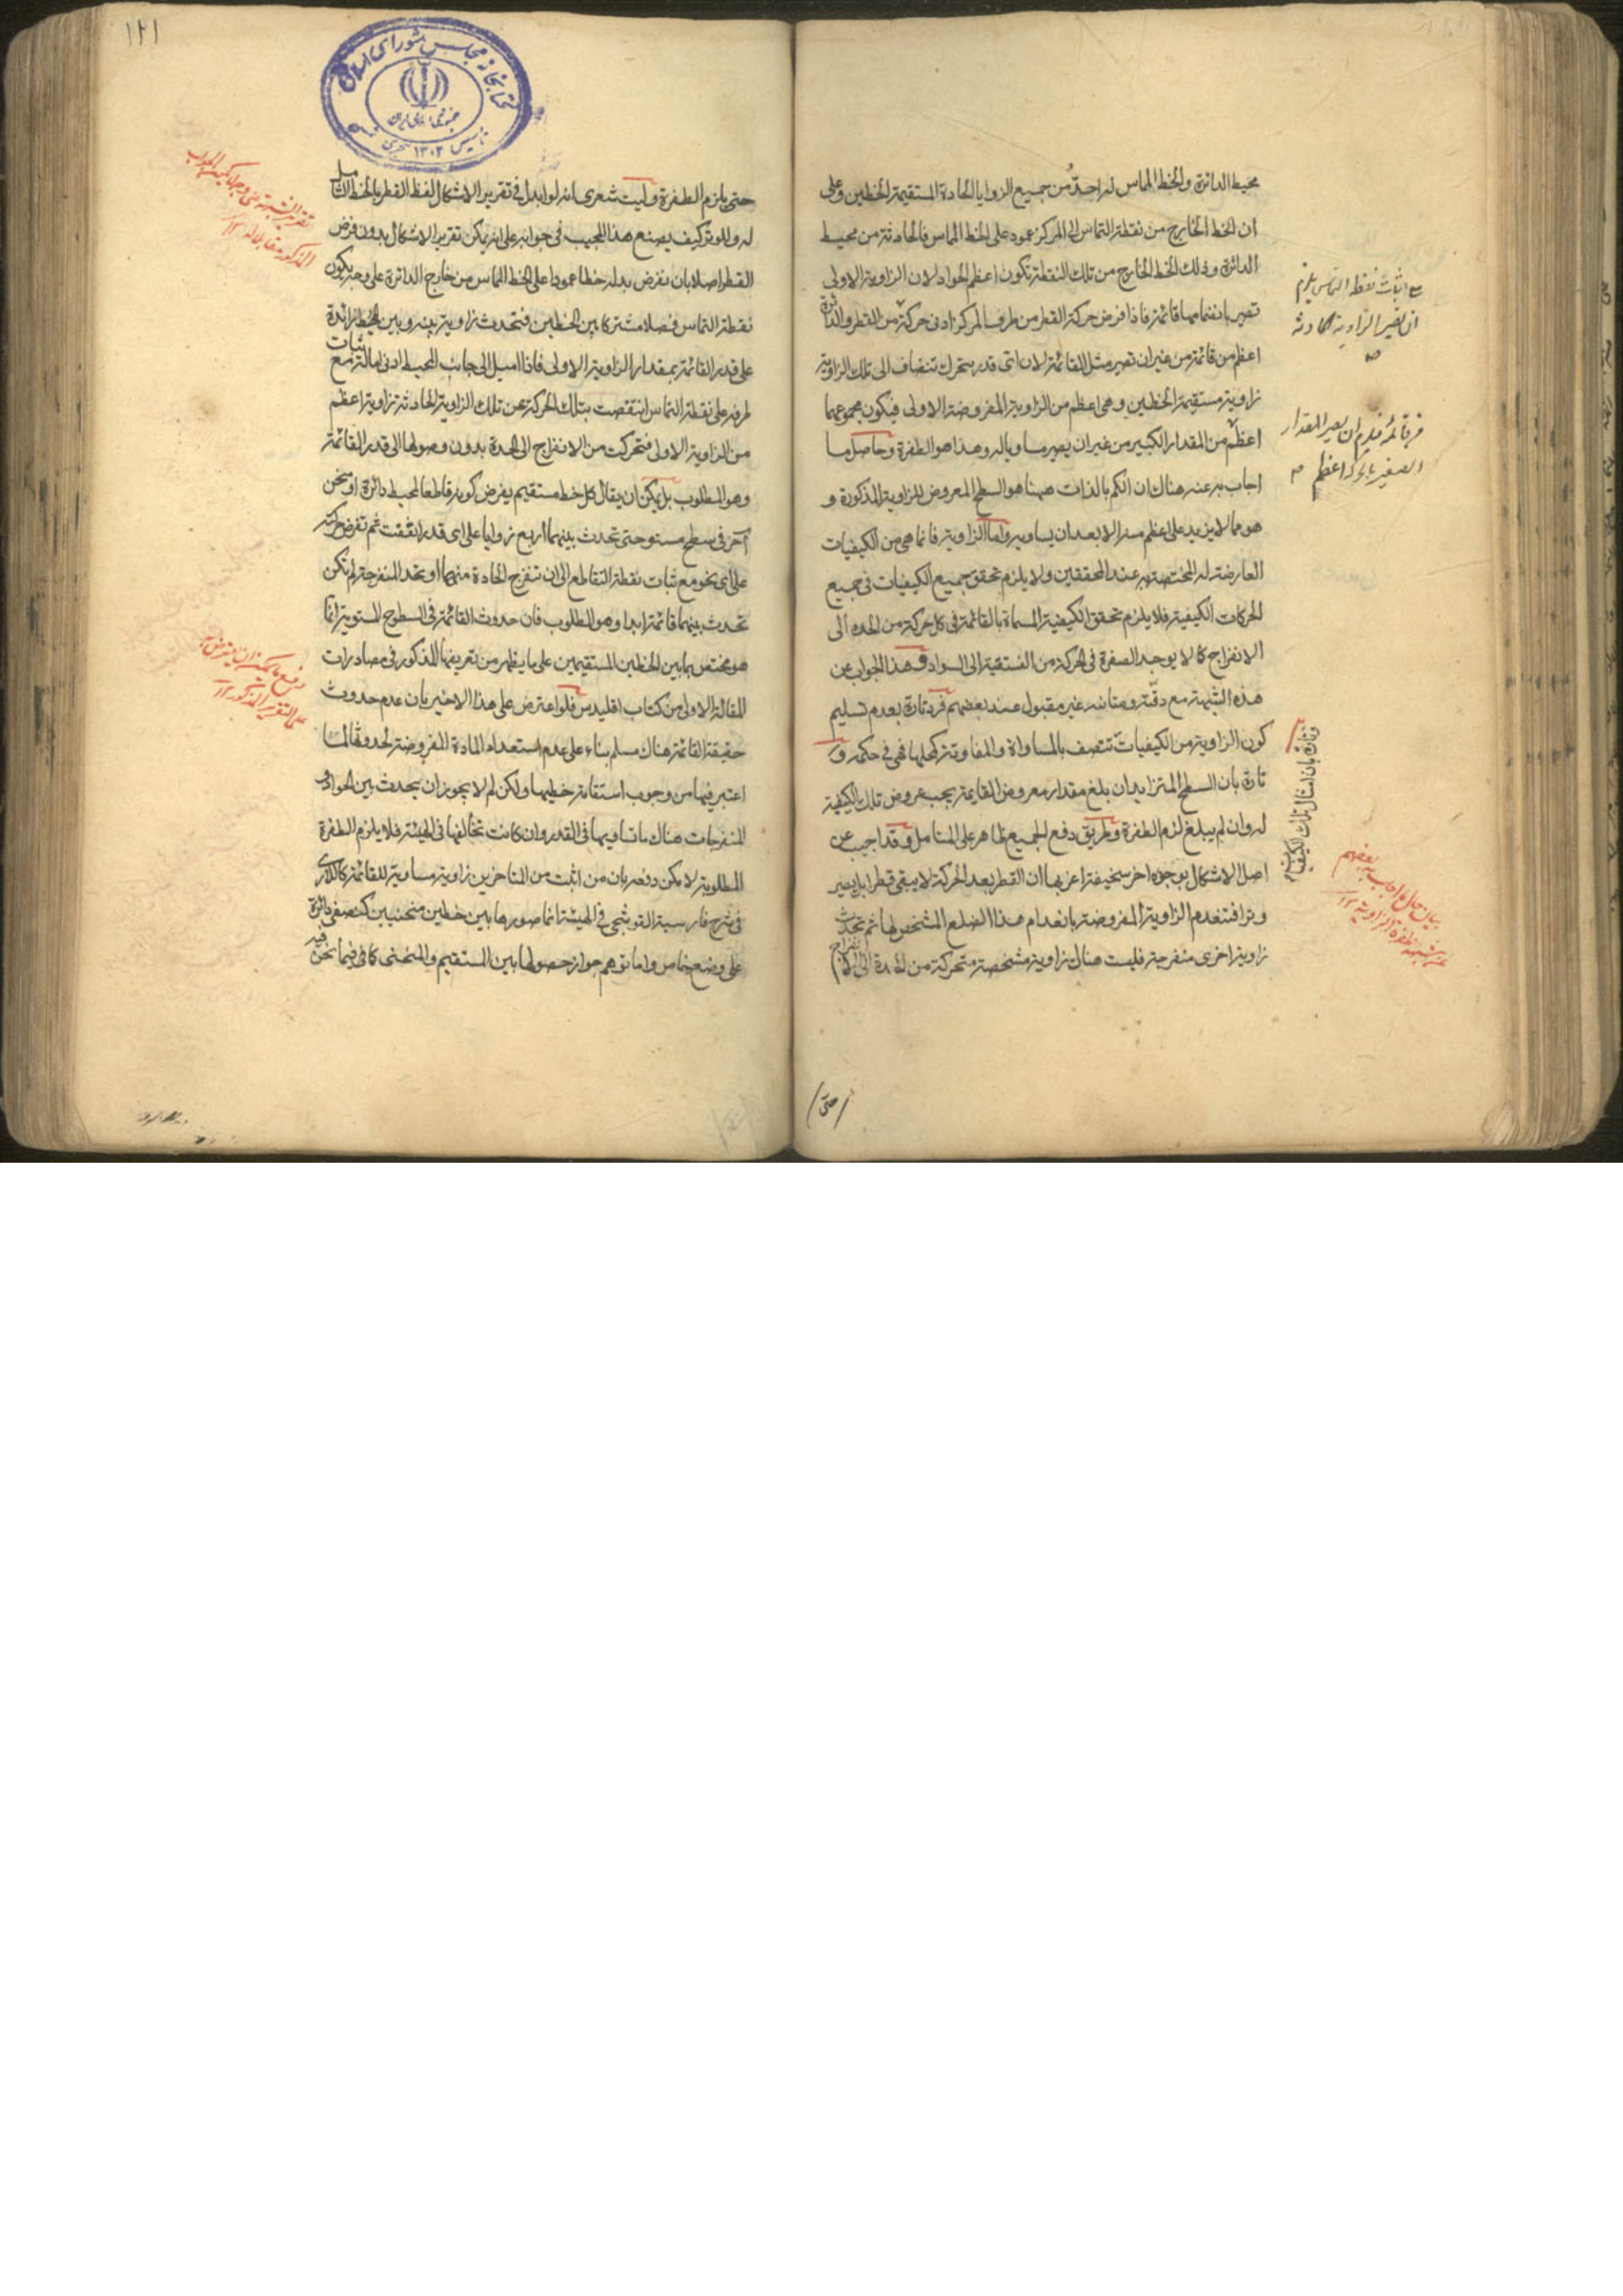 محيط الدائرة والخط المماس له احدّ من جميع الزوايا الحادة المستقيمة الخطين وعلى
ان الخط الخارج من نقطة التماس الى المركز عمود على الخط المماس فالحادثة من محيط
الدائرة وذلك الخط الخارج من تلك النقطة تكون اعظم الحواد لان الزاوية الاولى
تصير بانضمامها قائمة فاذا فرض حركة القطر من طرف المركز ادنى حركة من القطر والدائرة
اعظم من قائمة من غير ان تصير مثل القائمة لان اى قدر يتحرك تنضاف الى تلك الزاوية
زاوية مستقيمة الخطين وهى اعظم من الزاوية المفروضة الاولى فيكون مجموعهما
اعظم من المقدار الكبير من غير ان يصير مساويا له وهذا هو الطفرة وحاصل ما
اجاب به عنه هناك ان الكم بالذات ههنا هو السطح المعروض للزاوية المذكورة و
هو مما لا يزيد على اعظم منه الا بعد ان يساويه واما الزاوية فانما هى من الكيفيات
العارضة له المختصة به عند المحققين ولا يلزم تحقق جميع الكيفيات فى جميع
الحركات الكيفية فلا يلزم تحقق الكيفية المسماة بالقائمة فى كل حركة من الحدة الى
الانفراج كما لا يوجد الصفرة فى الحركة من الفستقية الى السواد وهذا الجواب عن
هذه الشبهة مع دقّته ومتانته غير مقبول عند بعضهم فردّ تارة بعدم تسليم
كون الزاوية من الكيفيات تتصف بالمساواة والمفاوتة كمحلها فهى فى حكمه و
تارة بان السطح المتزايد ان بلغ مقدار معروض القايمة يجب عروض تلك الكيفية
له وان لم يبلغ لزم الطفرة وطريق دفع الجميع ظاهر على المتامل وقد اجيب عن
اصل الاشكال بوجوه اخر سخيفة اعز بها ان القطر بعد الحركة لا يبقى قطرا بل يصير
وترا فتنعدم الزاوية المفروضة بانعدام هذا الضلع المشخص لها ثم تحدث
زاوية اخرى منفرجة فليست هناك زاوية مشخصة متحركة من الحادة الى الانفراج
اثبات نقطة التماس يلزم
ان تصير الزاوية الحادثة
فر قائمة فلزم ان يصير المقدار
الصغير بالحركة اعظم
وتارة بان امثال تلك الكيفيات
بيان حال ما اجاب به بعضهم
عن شبهة طفرة الزاوية ١٢
حتى
١٢١
كتابخانه مجلس شوراى اسلامى
جمهورى اسلامى ايران
تاسيس ١٣٠٢ هجرى
حتى يلزم الطفرة وليت شعرى انه لو ابدل فى تقرير الاشكال لفظ القطر بالخط الشامل
له وللوتر كيف يصنع هذا المجيب فى جوابه على انه يمكن تقرير الاشكال بدون فرض
القطر اصلا بان نفرض بدله خطا عمودا على الخط المماس من خارج الدائرة على وجه يكون
نقطة التماس فصلا مشتركا بين الخطين فتحدث زاوية بينه وبين المحيط زائدة
على قدر القائمة بمقدار الزاوية الاولى فاذا اميل الى جانب المحيط ادنى امالة مع ثبات
طرفه على نقطة التماس انتقصت بتلك الحركة عن تلك الزاوية الحادثة زاوية اعظم
من الزاوية الاولى فتحركت من الانفراج الى الحدة بدون وصولها الى قدر القائمة
وهو المطلوب بل يمكن ان يقال كل خط مستقيم يفرض كونه قاطعا لمحيط دائرة او منحن
آخر فى سطح مستو حتى تحدث بينهما اربع زوايا على اى قدر اتفقت ثم تفرض حركته
على اى نحو مع ثبات نقطة التقاطع الى ان تنفرج الحادة منهما او تحد المنفرجة لم تكن
تحدث بينهما قائمة ابدا وهو المطلوب فان حدوث القائمة فى السطوح المستوية انما
هو مختص بما بين الخطين المستقيمين على ما يظهر من تعريفها المذكور فى مصادرات
المقالة الاولى من كتاب اقليدس فلو اعترض على هذا الاخير بان عدم حدوث
حقيقة القائمة هناك مسلم بناء على عدم استعداد المادة المفروضة لحدوثها لما
اعتبر فيها من وجوب استقامة خطيها ولكن لم لا يجوز ان يحدث بين الحواد و
المنفرجات هناك ما تساويها فى القدر وان كانت تخالفها فى الهيئة فلا يلزم الطفرة
المطلوبة لا يمكن دفعه بان من اثبت من المتاخرين زاوية مساوية للقائمة كاللارى
فى شرح فارسية القوشجى فى الهيئة انما صورها بين خطين منحنيين كنصفى دائرة
على وضع خاص واما توهم جواز حصولها بين المستقيم والمنحنى كما فى فيما نحن فيه
تقرير الشبهة على وجه لا يمكن الجواب
المذكور مقابلا له ١٢
دفع ما يمكن ان يعترض به
على التقرير المذكور ١٢